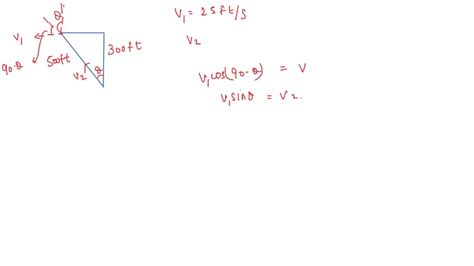 θ
v₁
90-θ
500ft
300ft
v₂
θ
v₁ = 25ft/s
v₂
v₁cos(90-θ) = V
v₁sinθ = V2.